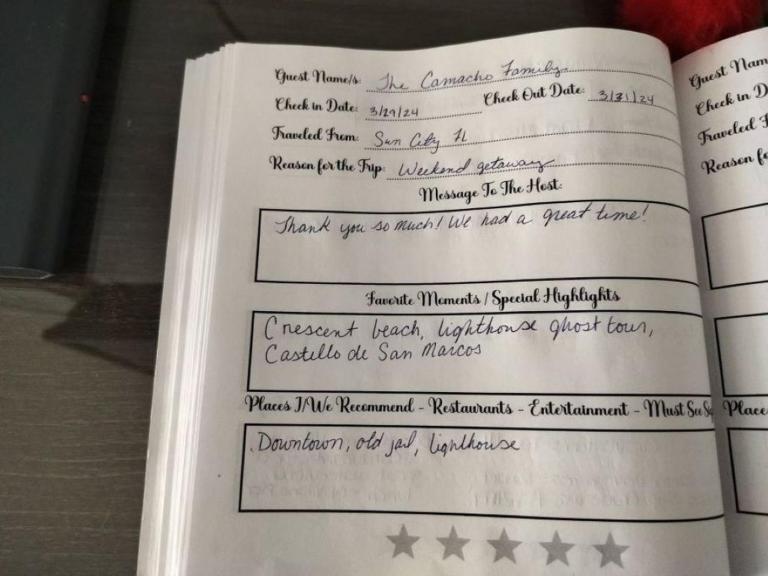 Guest Name/s: The Camacho Family
Check in Date: 3/29/24 Check Out Date: 3/31/24
Traveled From: Sun City FL
Reason for the Trip: Weekend getaway
Message To The Host:
Thank you so much! We had a great time!
Favorite Moments / Special Highlights
Crescent beach, lighthouse ghost tour,
Castillo de San Marcos
Places I/We Recommend - Restaurants - Entertainment - Must See
Downtown, old jail, lighthouse
Guest Nam
Check in D
Traveled F
Reason fo
Place